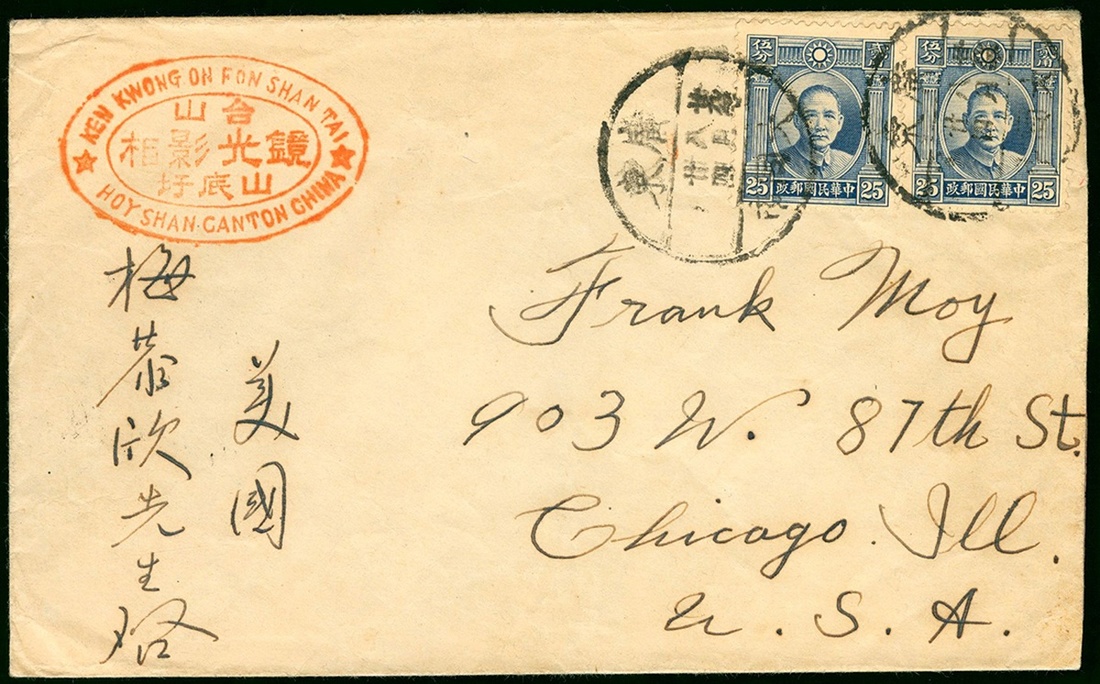 KEN KWONG ON FON SHAN TAI
台山
鏡光影相
山底圩
HOY SHAN·CANTON CHINA
伍分
貳角
中華民國郵政
25
25
伍分
貳角
中華民國郵政
25
25
廣東
Frank Moy
903 W. 87th St.
Chicago. Ill.
U. S. A.
美國
梅 欣先生啓